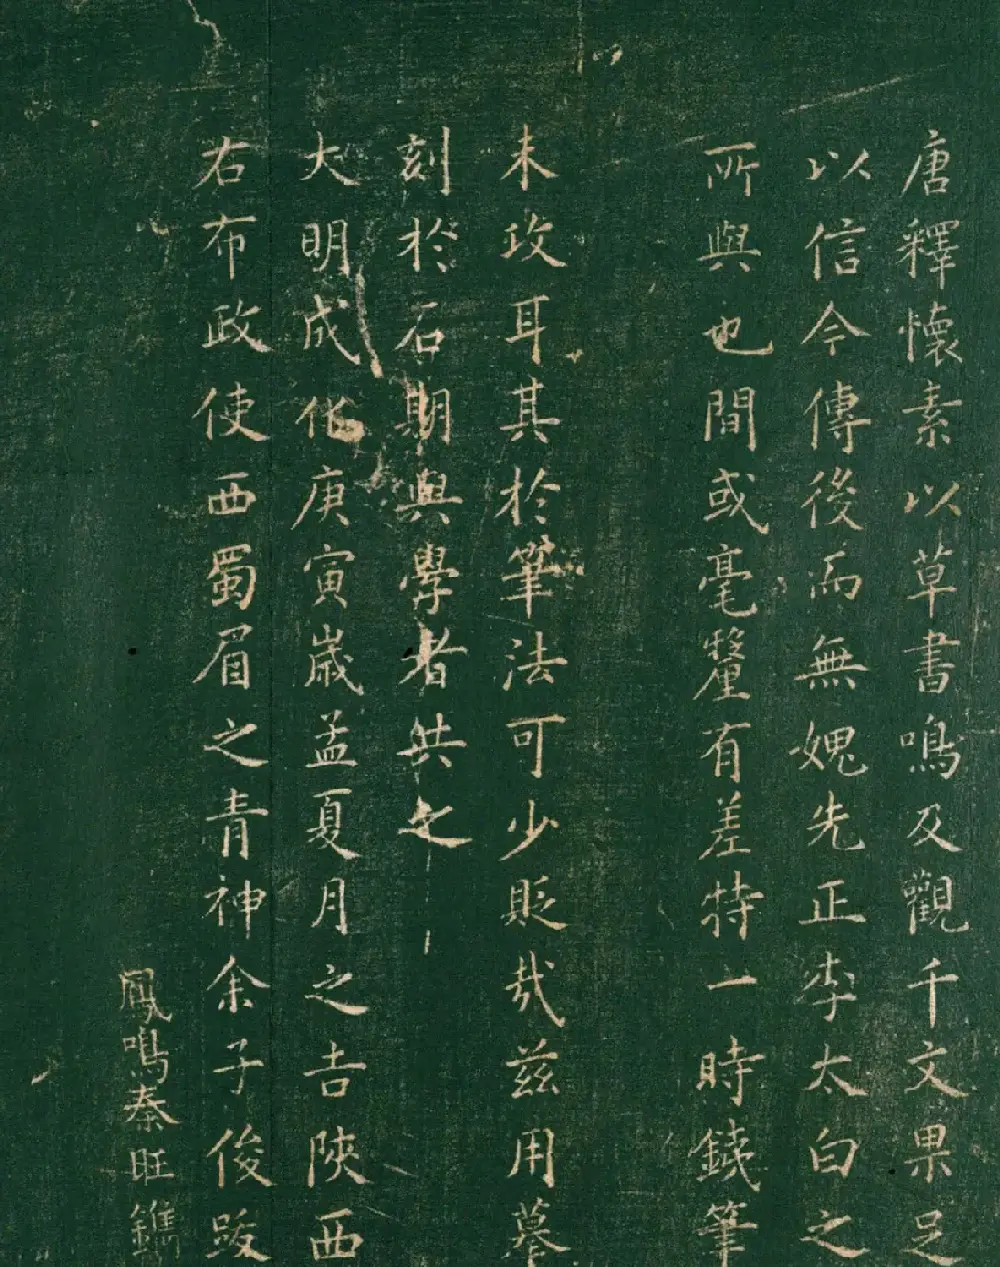 唐釋懷素以草書鳴及觀千文果足
以信今傳後而無媿先正李太白之
所與也間或毫釐有差特一時鋟筆
未攻耳其於筆法可少貶哉茲用摹
刻於石期與學者共之
大明成化庚寅歲孟夏月之吉陝西
右布政使西蜀眉之青神余子俊跋
鳳鳴秦旺鐫